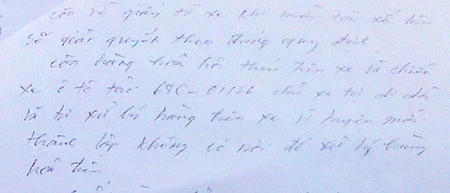 còn về giấy tờ xe khi nào tôi xử lý
sẽ giải quyết theo đúng quy định
còn hàng hóa hỏi trên xe và chiếc
xe ô tô tải 68C-01126 chủ xe tự di dời
và tự xử lý hàng trên xe vì huyện mới
thành lập không có nơi để xử lý hàng
hóa trên